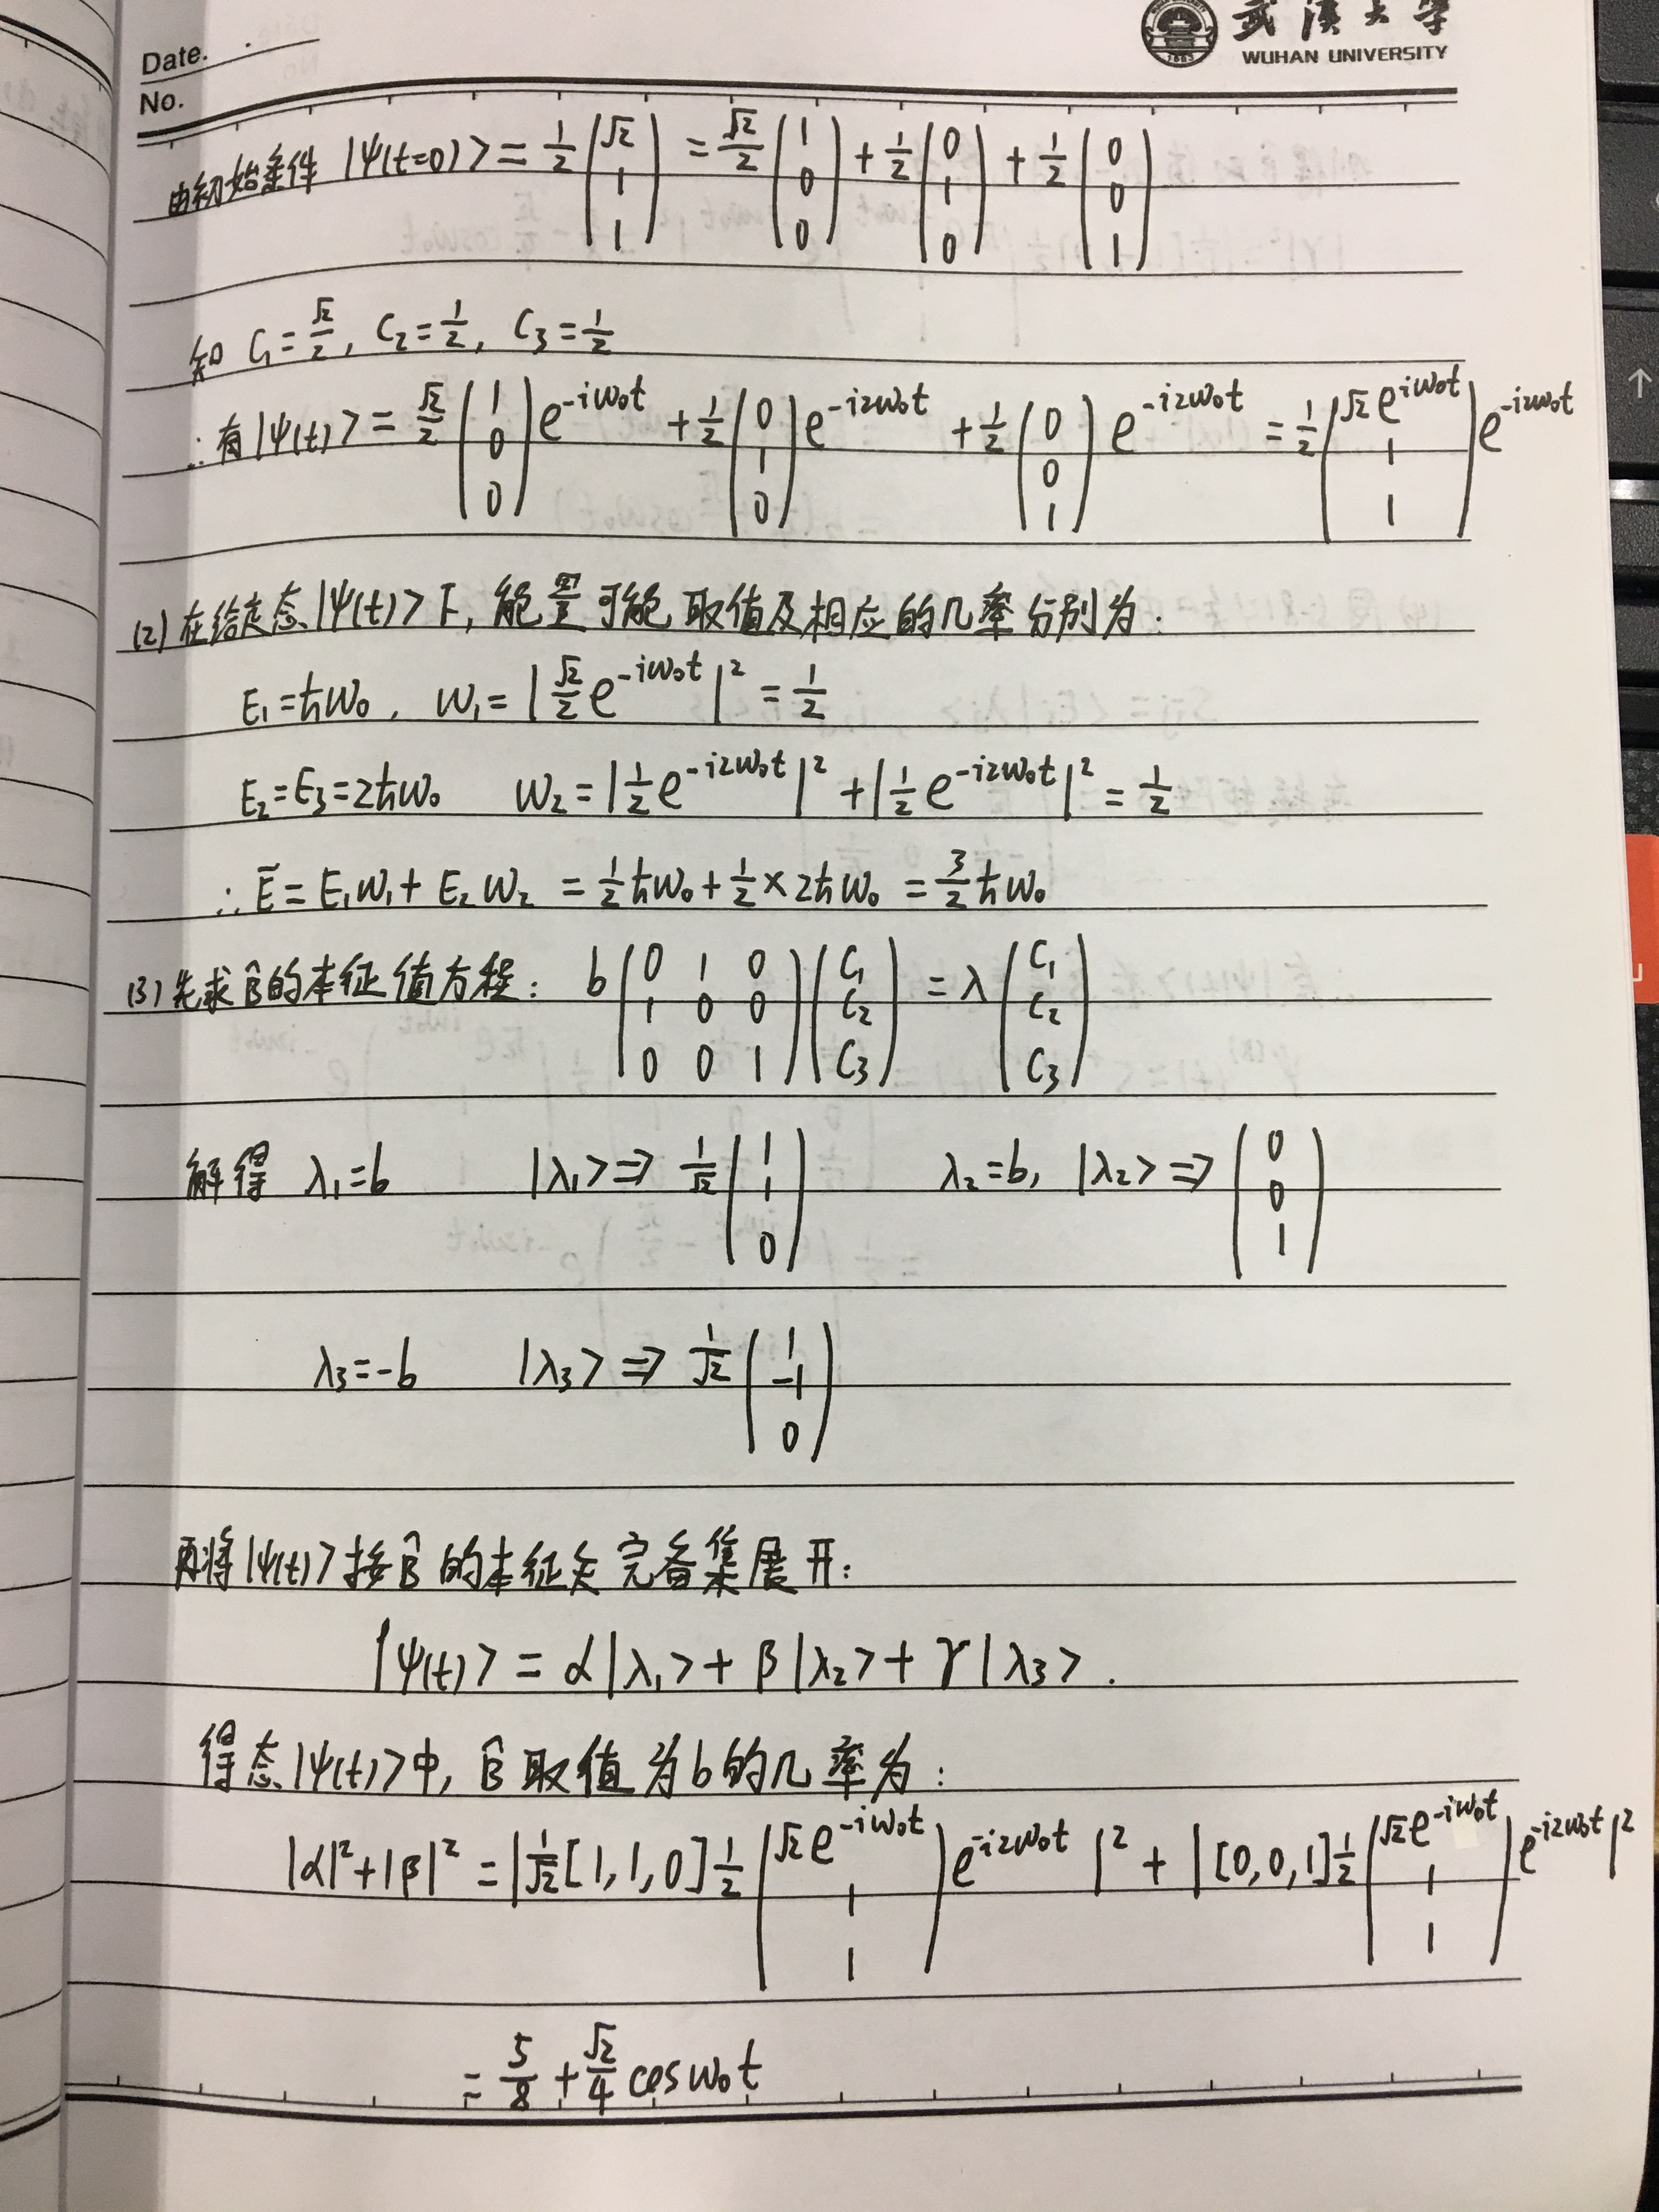 Date.
No.
武漢大学
WUHAN UNIVERSITY
由初始条件 |ψ(t=0)> = 1/2 (√2 1 1) = √2/2 (1 0 0) + 1/2 (0 1 0) + 1/2 (0 0 1)
知 C₁ = √2/2, C₂ = 1/2, C₃ = 1/2
∴有 |ψ(t)> = √2/2 (1 0 0) e^{-iω₀t} + 1/2 (0 1 0) e^{-i2ω₀t} + 1/2 (0 0 1) e^{-i2ω₀t} = 1/2 (√2e^{iω₀t} 1 1) e^{-i2ω₀t}
(2) 在给定态|ψ(t)>下, 能量可能取值及相应的几率分别为:
E₁=ħω₀, W₁ = |√2/2 e^{-iω₀t}|² = 1/2
E₂=E₃=2ħω₀ W₂ = |1/2 e^{-i2ω₀t}|² + |1/2 e^{-i2ω₀t}|² = 1/2
∴ Ē = E₁W₁ + E₂W₂ = 1/2 ħω₀ + 1/2 × 2ħω₀ = 3/2 ħω₀
(3) 先求B̂的本征值方程: b (0 1 0 1 0 0 0 0 1) (C₁ C₂ C₃) = λ (C₁ C₂ C₃)
解得 λ₁=b |λ₁> ⇒ 1/√2 (1 1 0) λ₂=b, |λ₂> ⇒ (0 0 1)
λ₃=-b |λ₃> ⇒ 1/√2 (1 -1 0)
再将|ψ(t)>按B̂的本征矢完备集展开:
|ψ(t)> = α|λ₁> + β|λ₂> + γ|λ₃>.
得态|ψ(t)>中, B̂取值为b的几率为:
|α|²+|β|² = |1/√2 [1,1,0] 1/2 (√2e^{-iω₀t} 1 1) e^{-i2ω₀t}|² + |[0,0,1] 1/2 (√2e^{-iω₀t} 1 1) e^{-i2ω₀t}|²
= 5/8 + √2/4 cosω₀t